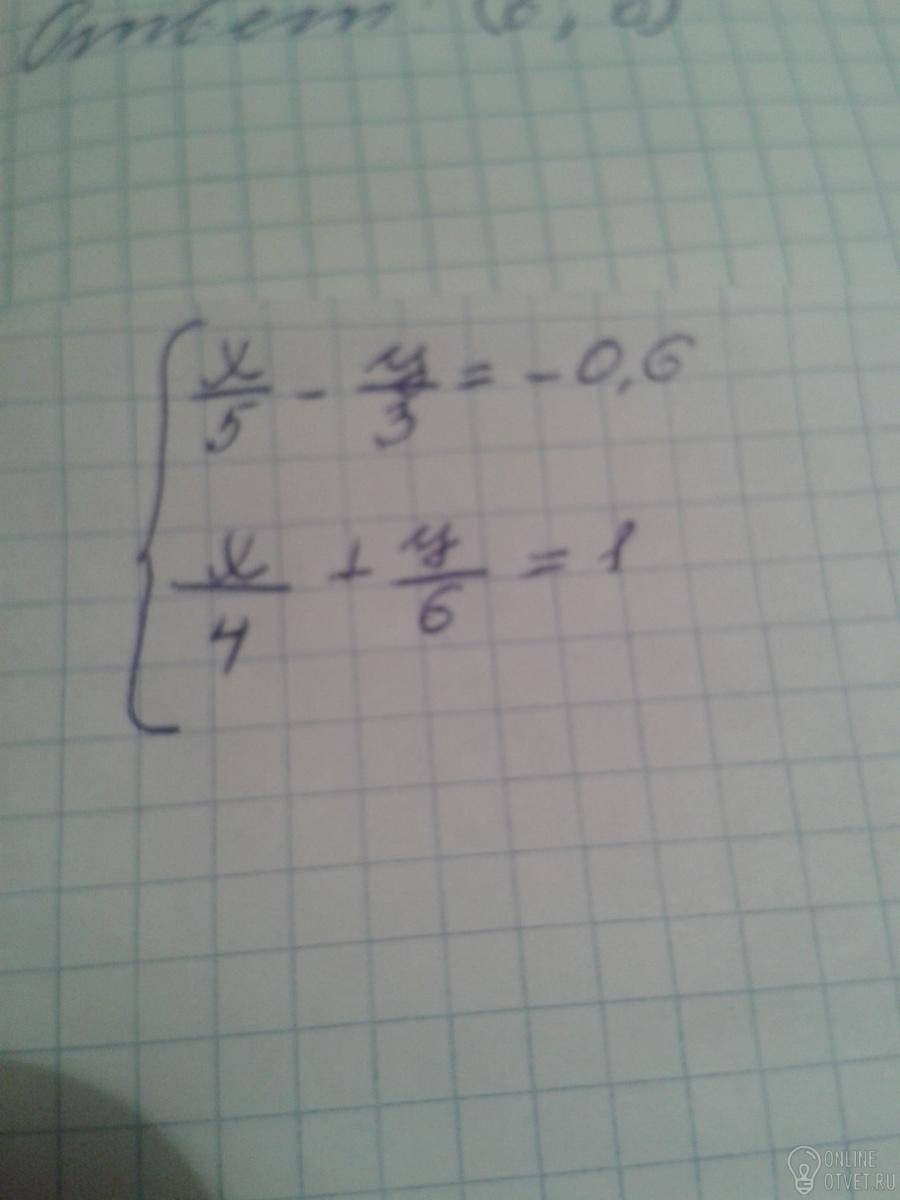 Ответ: (6; 6)
x/5 - y/3 = -0,6
x/4 + y/6 = 1
ONLINE
OTVET.RU